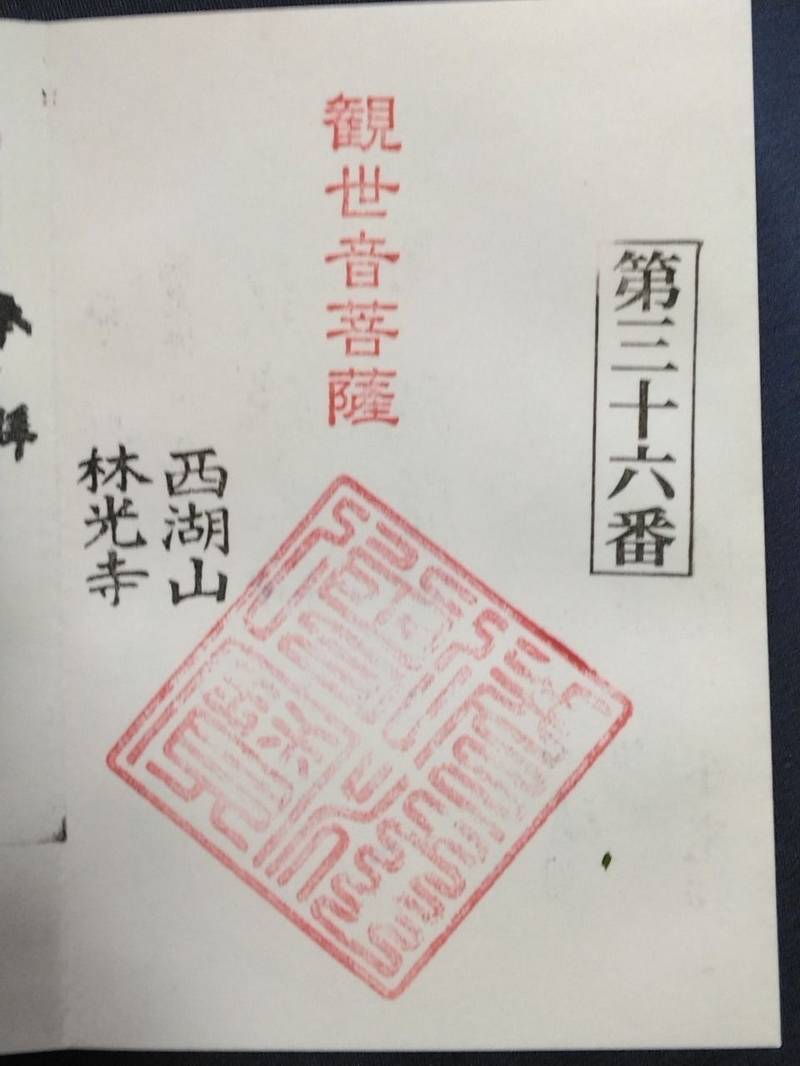 第三十六番
観世音菩薩
西湖山
林光寺